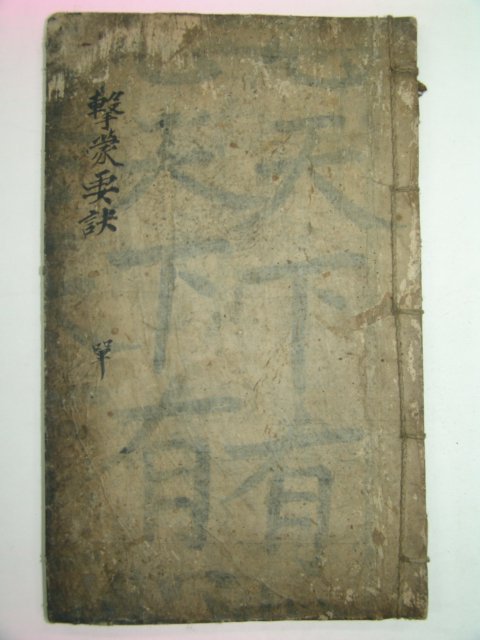 擊蒙要訣
單
天下有
天下有